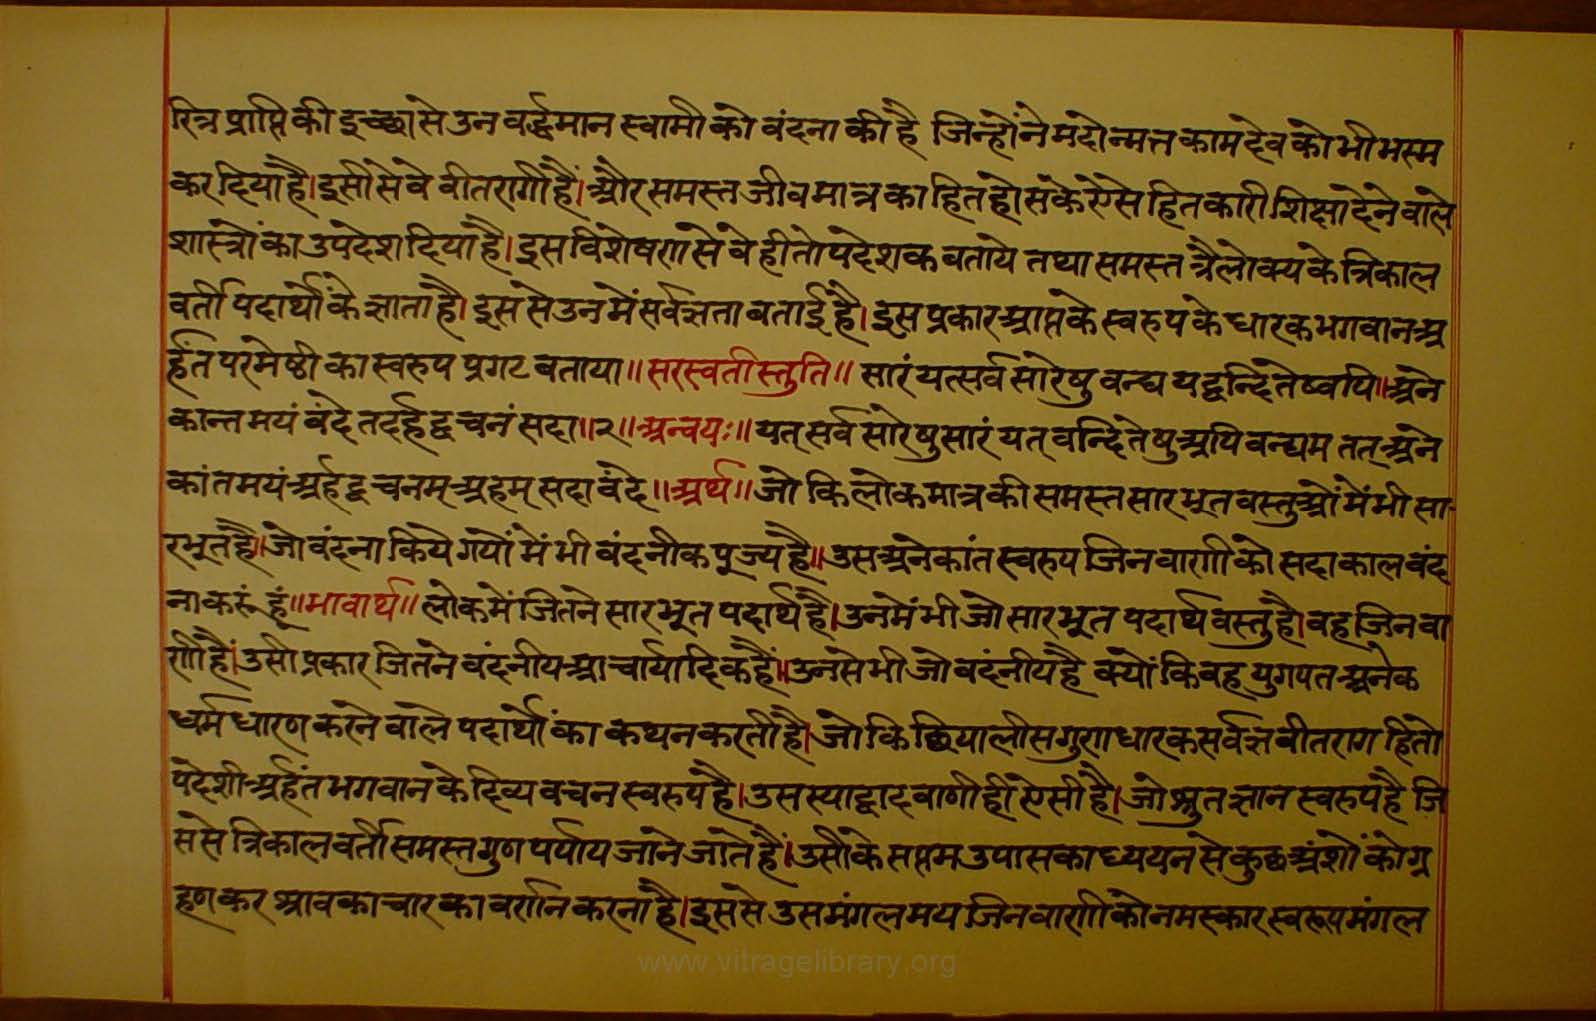 रित्र प्राप्ति की इच्छा से उन वर्द्धमान स्वामी को वंदना की है जिन्होंने मदोन्मत्त कामदेव को भी भस्म
कर दिया है। इसी से वे वीतरागी हैं। और समस्त जीव मात्र का हित हो सके ऐसे हितकारी शिक्षा देने वाले
शास्त्रों का उपदेश दिया है। इस विशेषण से वे हीतोपदेशक बताये तथा समस्त त्रैलोक्य के त्रिकाल
वर्ती पदार्थों के ज्ञाता है। इस से उनमें सर्वज्ञता बताई है। इस प्रकार आप्त के स्वरुप के धारक भगवान अ
र्हंत परमेष्ठी का स्वरुप प्रगट बताया॥ सरस्वती स्तुति॥ सारं यत्सर्व सारेषु वन्द्य यद्वन्दितेष्वपि॥ अने
कान्त मयं वंदे तदर्हद्वचनं सदा॥२॥ अन्वयः॥ यत् सर्व सारेषु सारं यत् वन्दितेषु अपि वन्द्यम तत् अने
कांतमयं अर्हद्वचनम् अहम् सदा वंदे॥ अर्थ॥ जो कि लोकमात्र की समस्त सारभूत वस्तुओं में भी सा
रभूत है॥ जो वंदना किये गयों में भी वंदनीक पूज्य है॥ उस अनेकांत स्वरुप जिनवाणी को सदाकाल वंद
ना करुं हूं॥ भावार्थ॥ लोक में जितने सारभूत पदार्थ है। उनमें भी जो सारभूत पदार्थ वस्तु है। वह जिनवा
णी है। उसी प्रकार जितने वदंनीय आचार्यादिक हैं॥ उनसे भी जो वदंनीय है क्यों कि वह युगपत अनेक
धर्म धारण करने वाले पदार्थों का कथन करती है। जो कि छियालीस गुण धारक सर्वज्ञ वीतराग हितो
पदेशी अर्हंत भगवान के दिव्य वचन स्वरुप है। उस स्याद्वाद वाणी ही ऐसी है। जो श्रुतज्ञान स्वरुप है जि
ससे त्रिकालवर्ती समस्त गुण पर्याय जाने जाते हैं। उसी के सप्तम उपासकाध्ययन से कुछ अंशों को ग्र
हण कर श्रावकाचार का वर्णन करना है। इससे उस मंगलमय जिनवाणी को नमस्कार स्वरूप मंगल
www.vitragelibrary.org